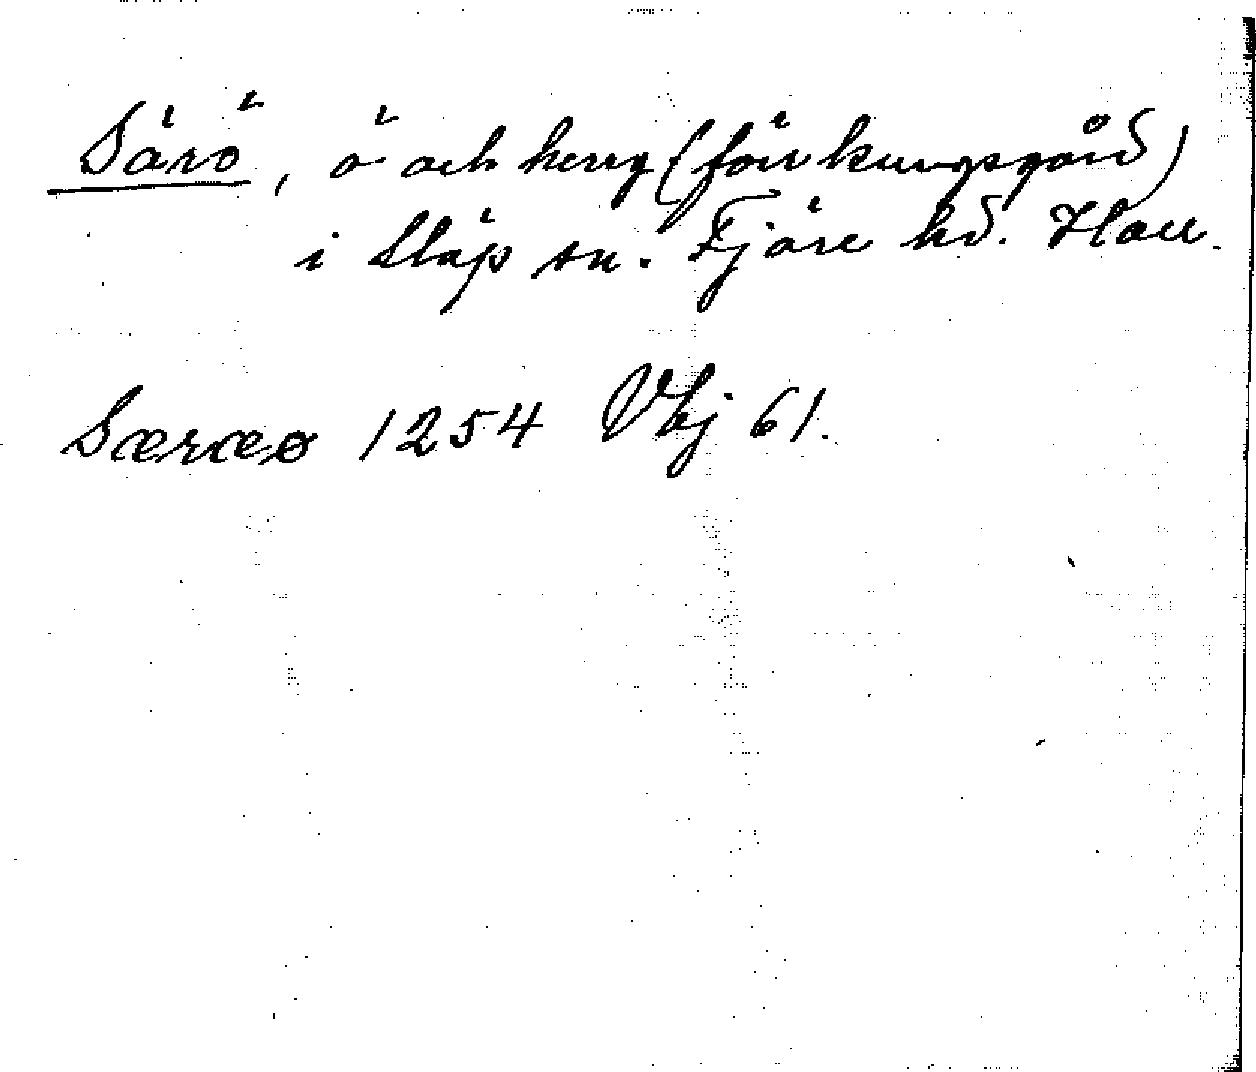 Särö, ö och herrg (förr kungsgård)
i Släp sn. Fjäre hd. Hall.
Særæø 1254 Vhj 61.